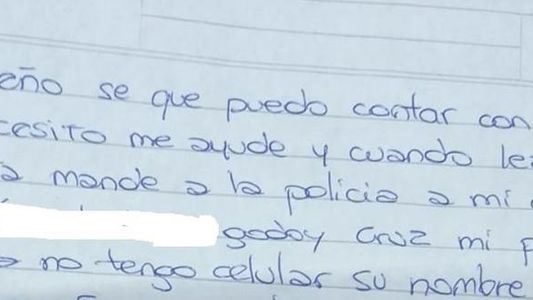 eño se que puedo contar con
cesito me ayude y cuando le
a mande a la policia a mi
godoy cruz mi
no tengo celular su nombre